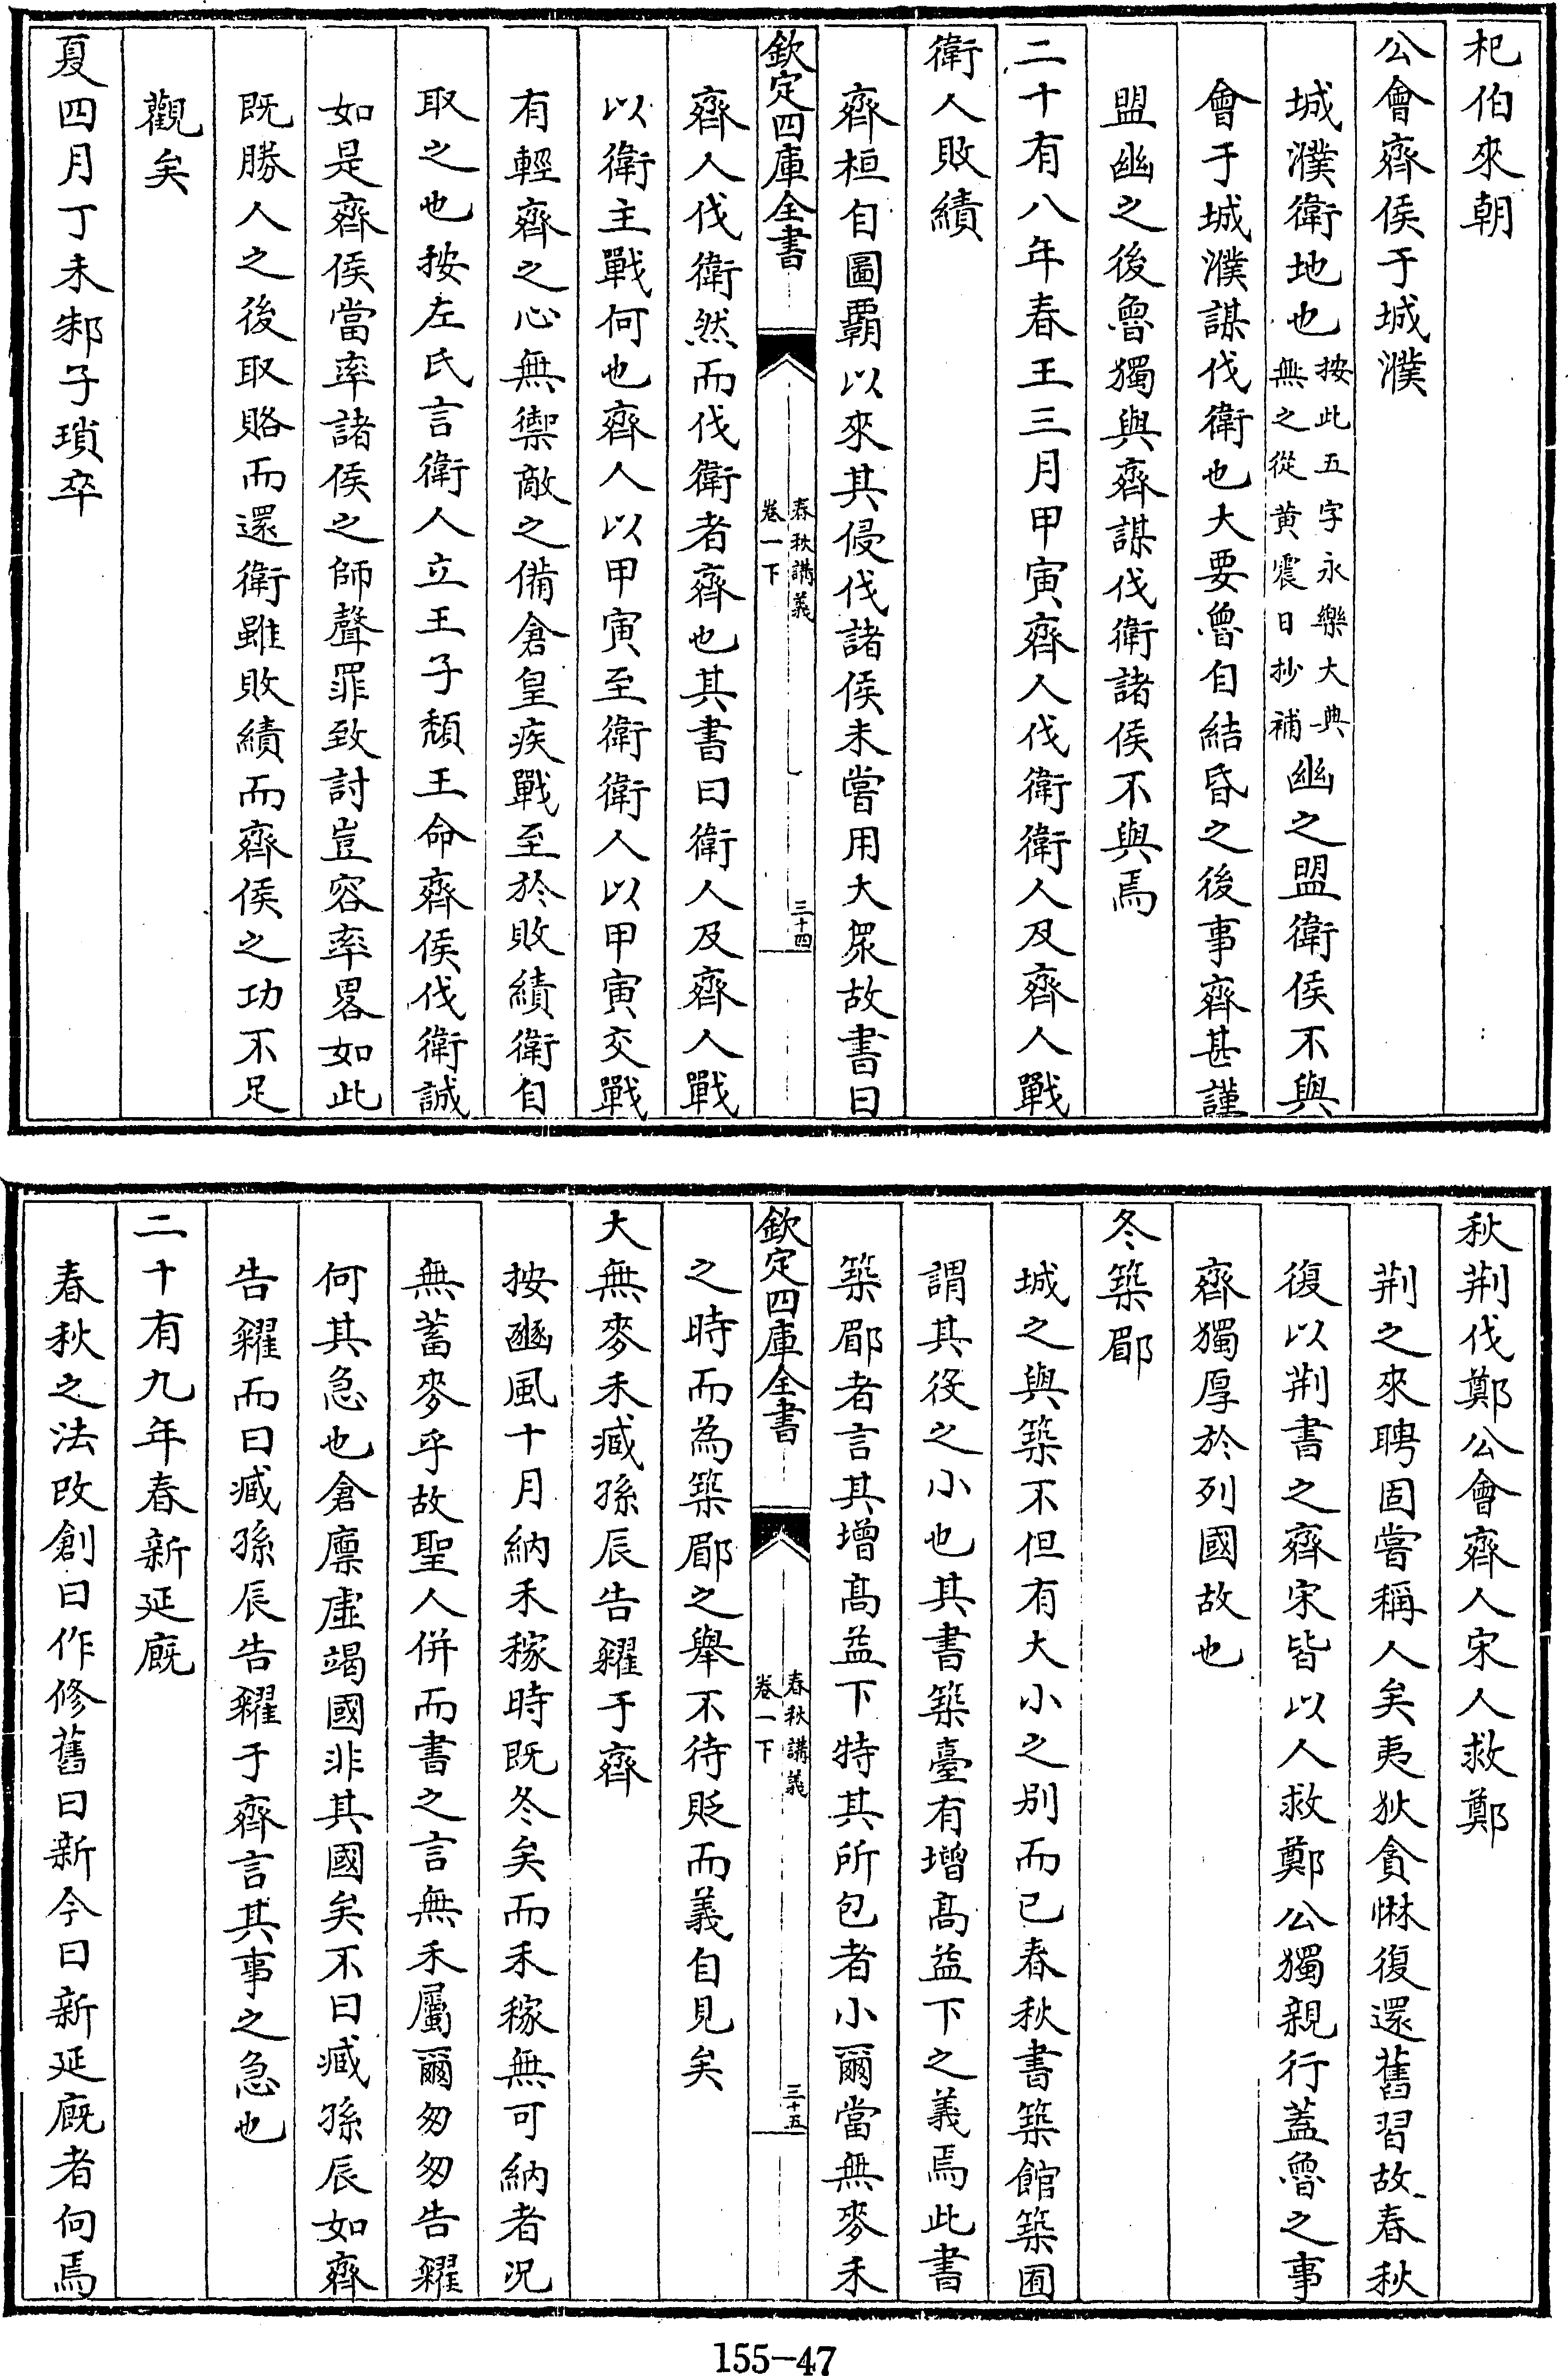 杞伯來朝
公會齊侯于城濮
城濮衛地也按此五字永樂大典無之從黄震日抄補幽之盟衛侯不與
會于城濮謀伐衛也大要魯自結昏之後事齊甚謹
盟幽之後魯獨與齊謀伐衛諸侯不與焉
二十有八年春王三月甲寅齊人伐衛衛人及齊人戰
衛人敗績
齊桓自圖霸以來其侵伐諸侯未嘗用大衆故書曰
欽定四庫全書
春秋講義
卷一下
三十四
齊人伐衛然而伐衛者齊也其書曰衛人及齊人戰
以衛主戰何也齊人以甲寅至衛衛人以甲寅交戰
有輕齊之心無禦敵之備倉皇疾戰至於敗績衛自
取之也按左氏言衛人立王子頽王命齊侯伐衛誠
如是齊侯當率諸侯之師聲罪致討豈容率畧如此
既勝人之後取賂而還衛雖敗績而齊侯之功不足
觀矣
夏四月丁未邾子瑣卒
秋荆伐鄭公會齊人宋人救鄭
荆之來聘固嘗稱人矣夷狄貪惏復還舊習故春秋
復以荆書之齊宋皆以人救鄭公獨親行蓋魯之事
齊獨厚於列國故也
冬築郿
城之與築不但有大小之別而已春秋書築館築囿
謂其役之小也其書築臺有增高益下之義焉此書
築郿者言其增高益下特其所包者小爾當無麥禾
欽定四庫全書
春秋講義
卷一下
三十五
之時而為築郿之舉不待貶而義自見矣
大無麥禾臧孫辰告糴于齊
按豳風十月納禾稼時既冬矣而禾稼無可納者况
無蓄麥乎故聖人併而書之言無禾屬爾匆匆告糴
何其急也倉廪虛竭國非其國矣不曰臧孫辰如齊
告糴而曰臧孫辰告糴于齊言其事之急也
二十有九年春新延廐
春秋之法改創曰作修舊曰新今曰新延廐者何焉
155-47